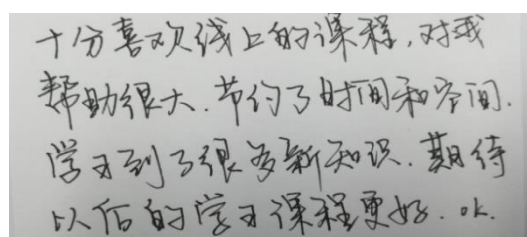 十分喜欢线上的课程,对我
帮助很大.节约了时间和空间.
学习到了很多新知识.期待
以后的学习课程更好.ok.